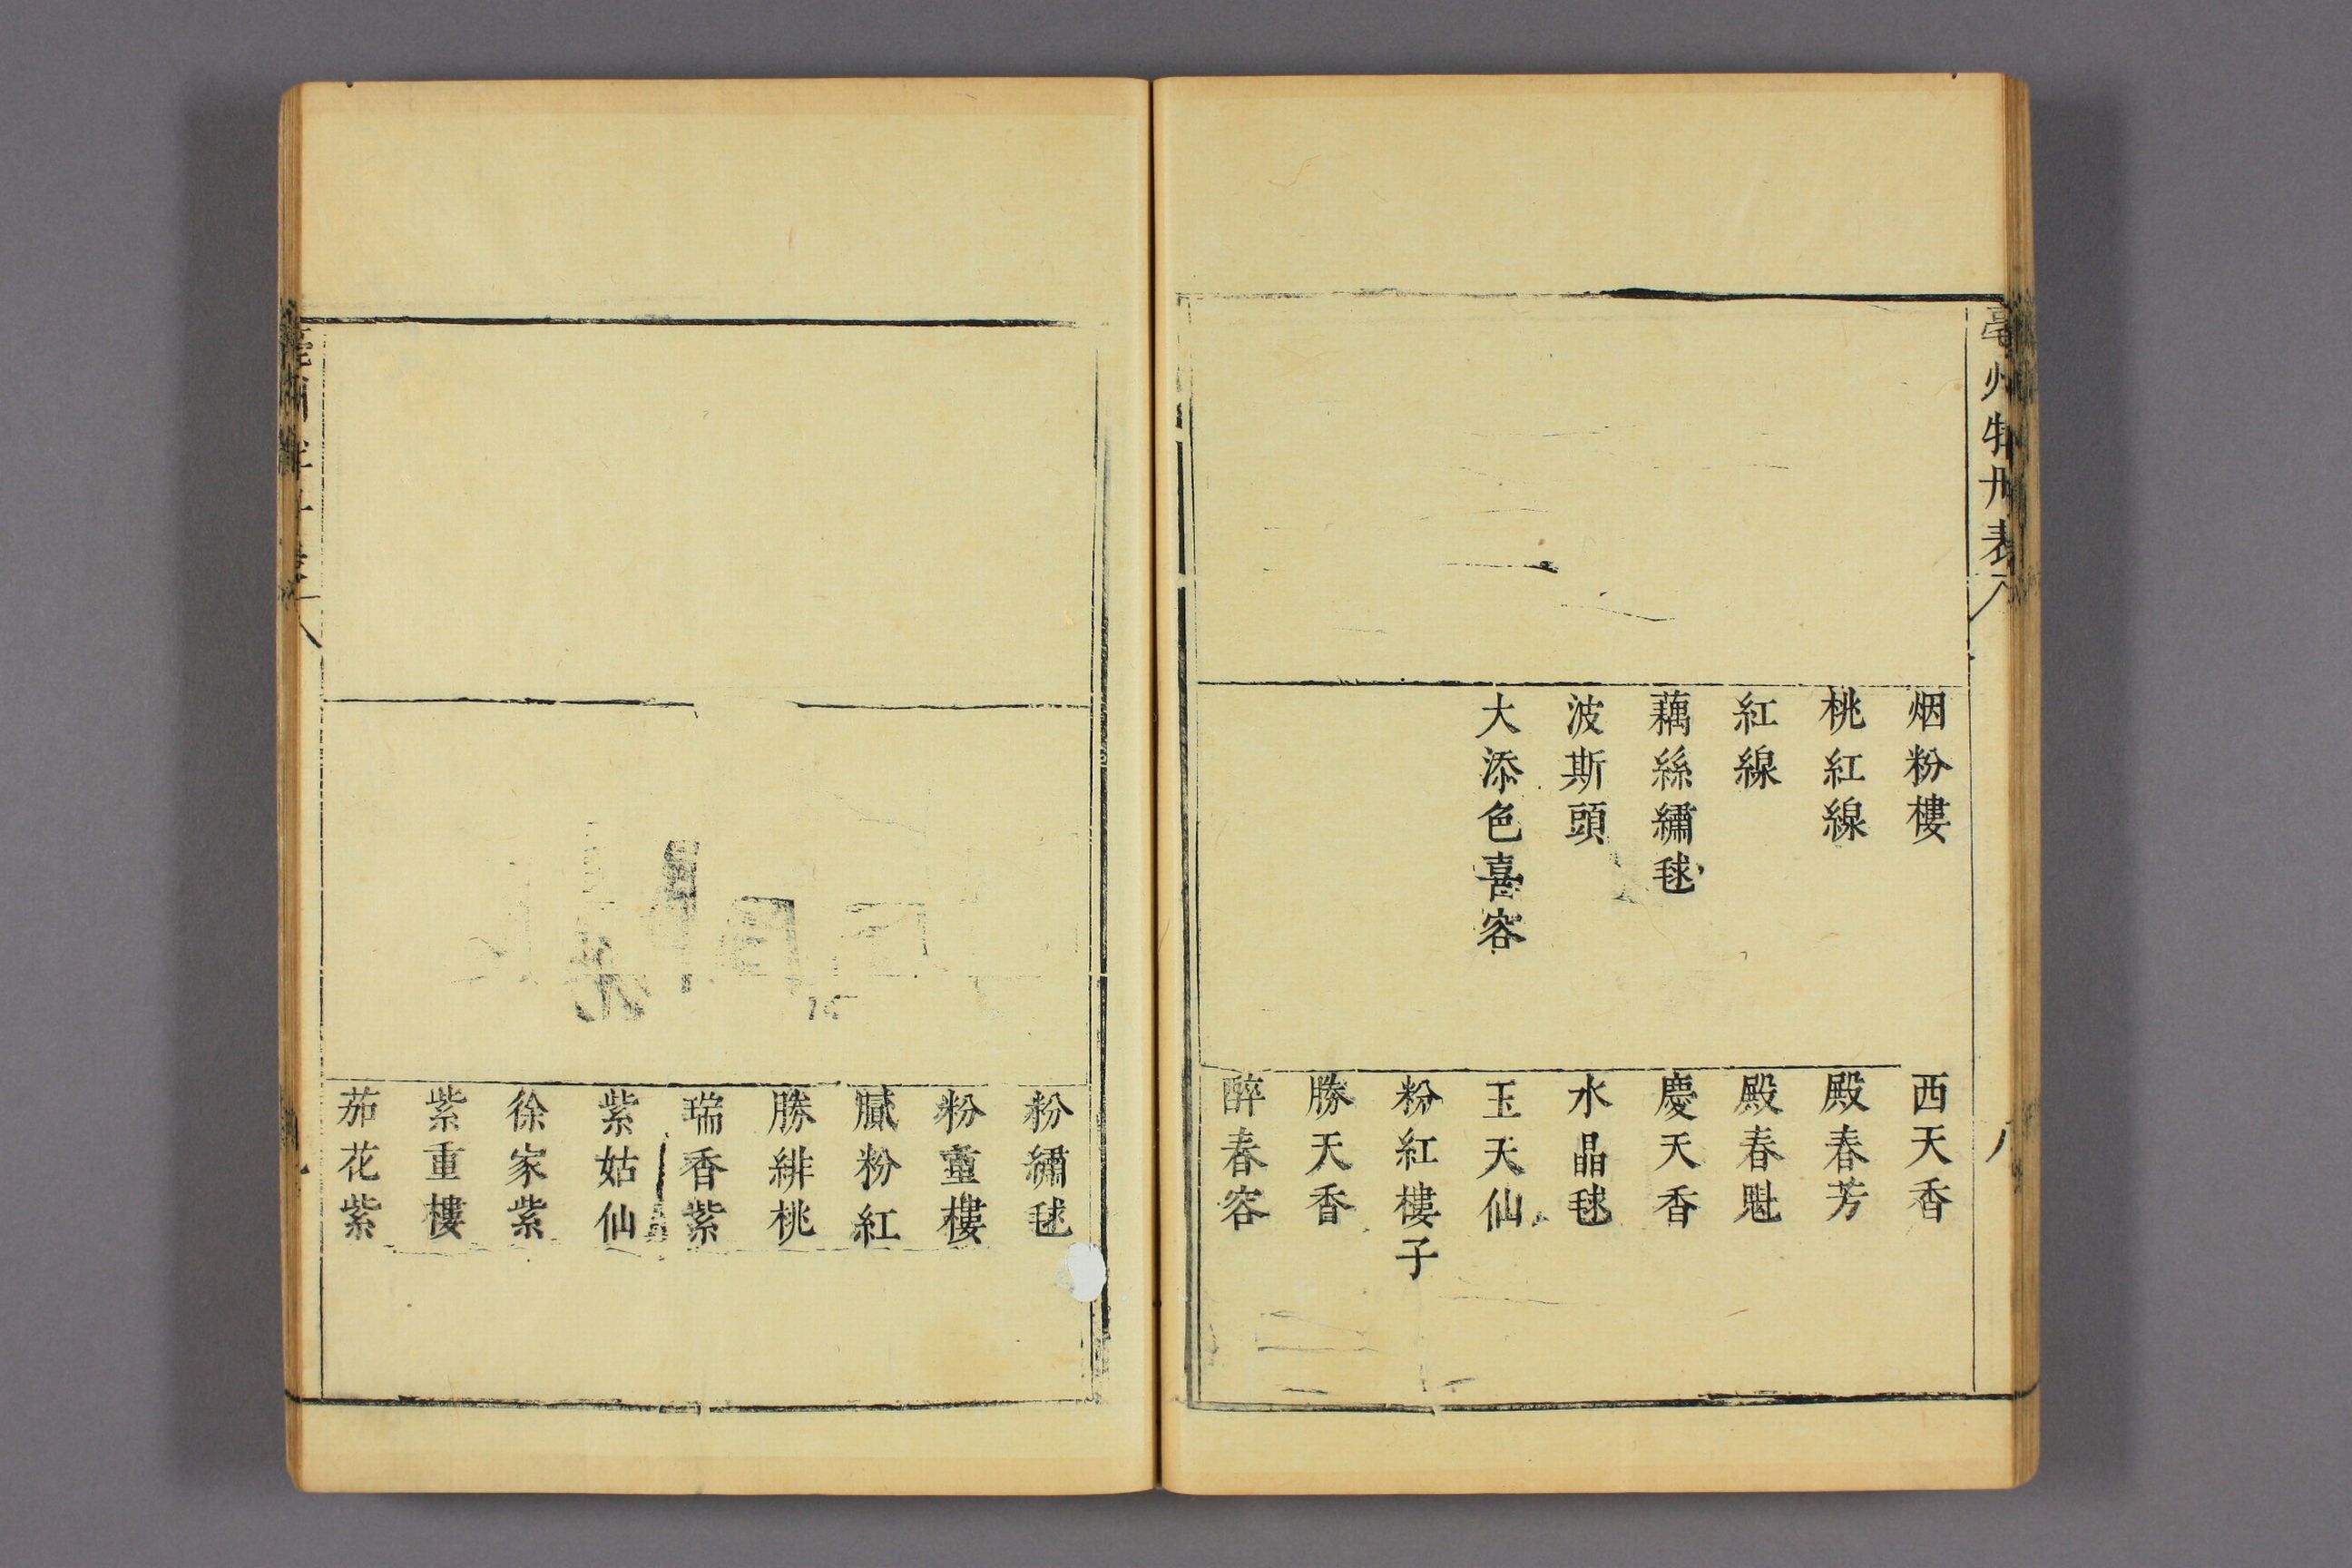 亳州牡丹表
八
烟粉樓
桃紅線
紅線
藕絲繡毬
波斯頭
大添色喜容
西天香
殿春芳
殿春魁
慶天香
水晶毬
玉天仙
粉紅樓子
勝天香
醉春容
粉繡毬
粉重樓
膩粉紅
勝緋桃
瑞香紫
紫姑仙
徐家紫
紫重樓
茄花紫